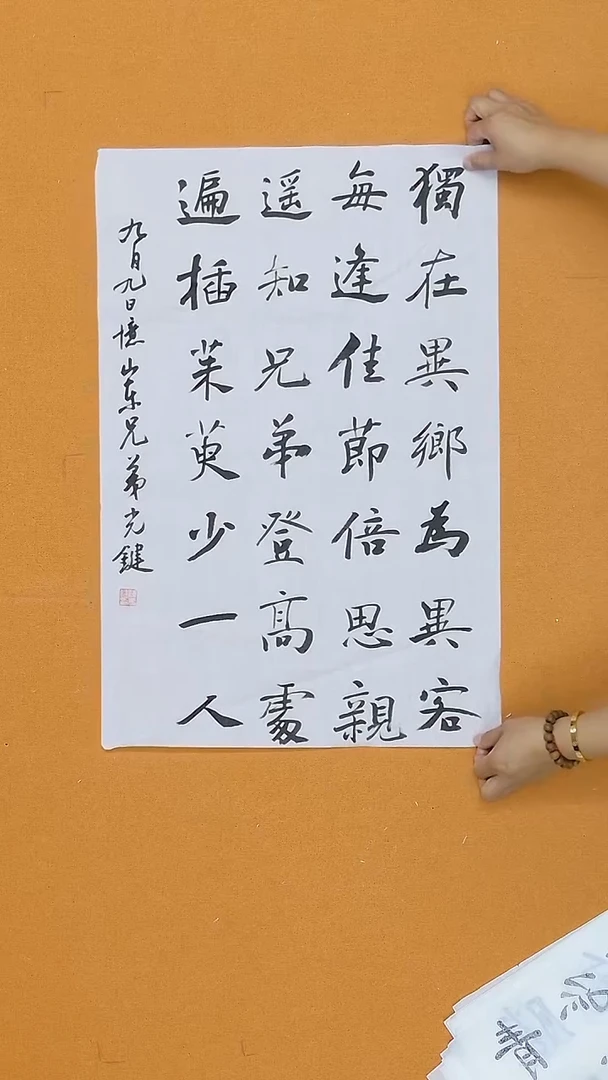 獨在異鄉為異客
每逢佳節倍思親
遥知兄弟登高處
遍插茱萸少一人
九月九日憶山東兄弟光鍵